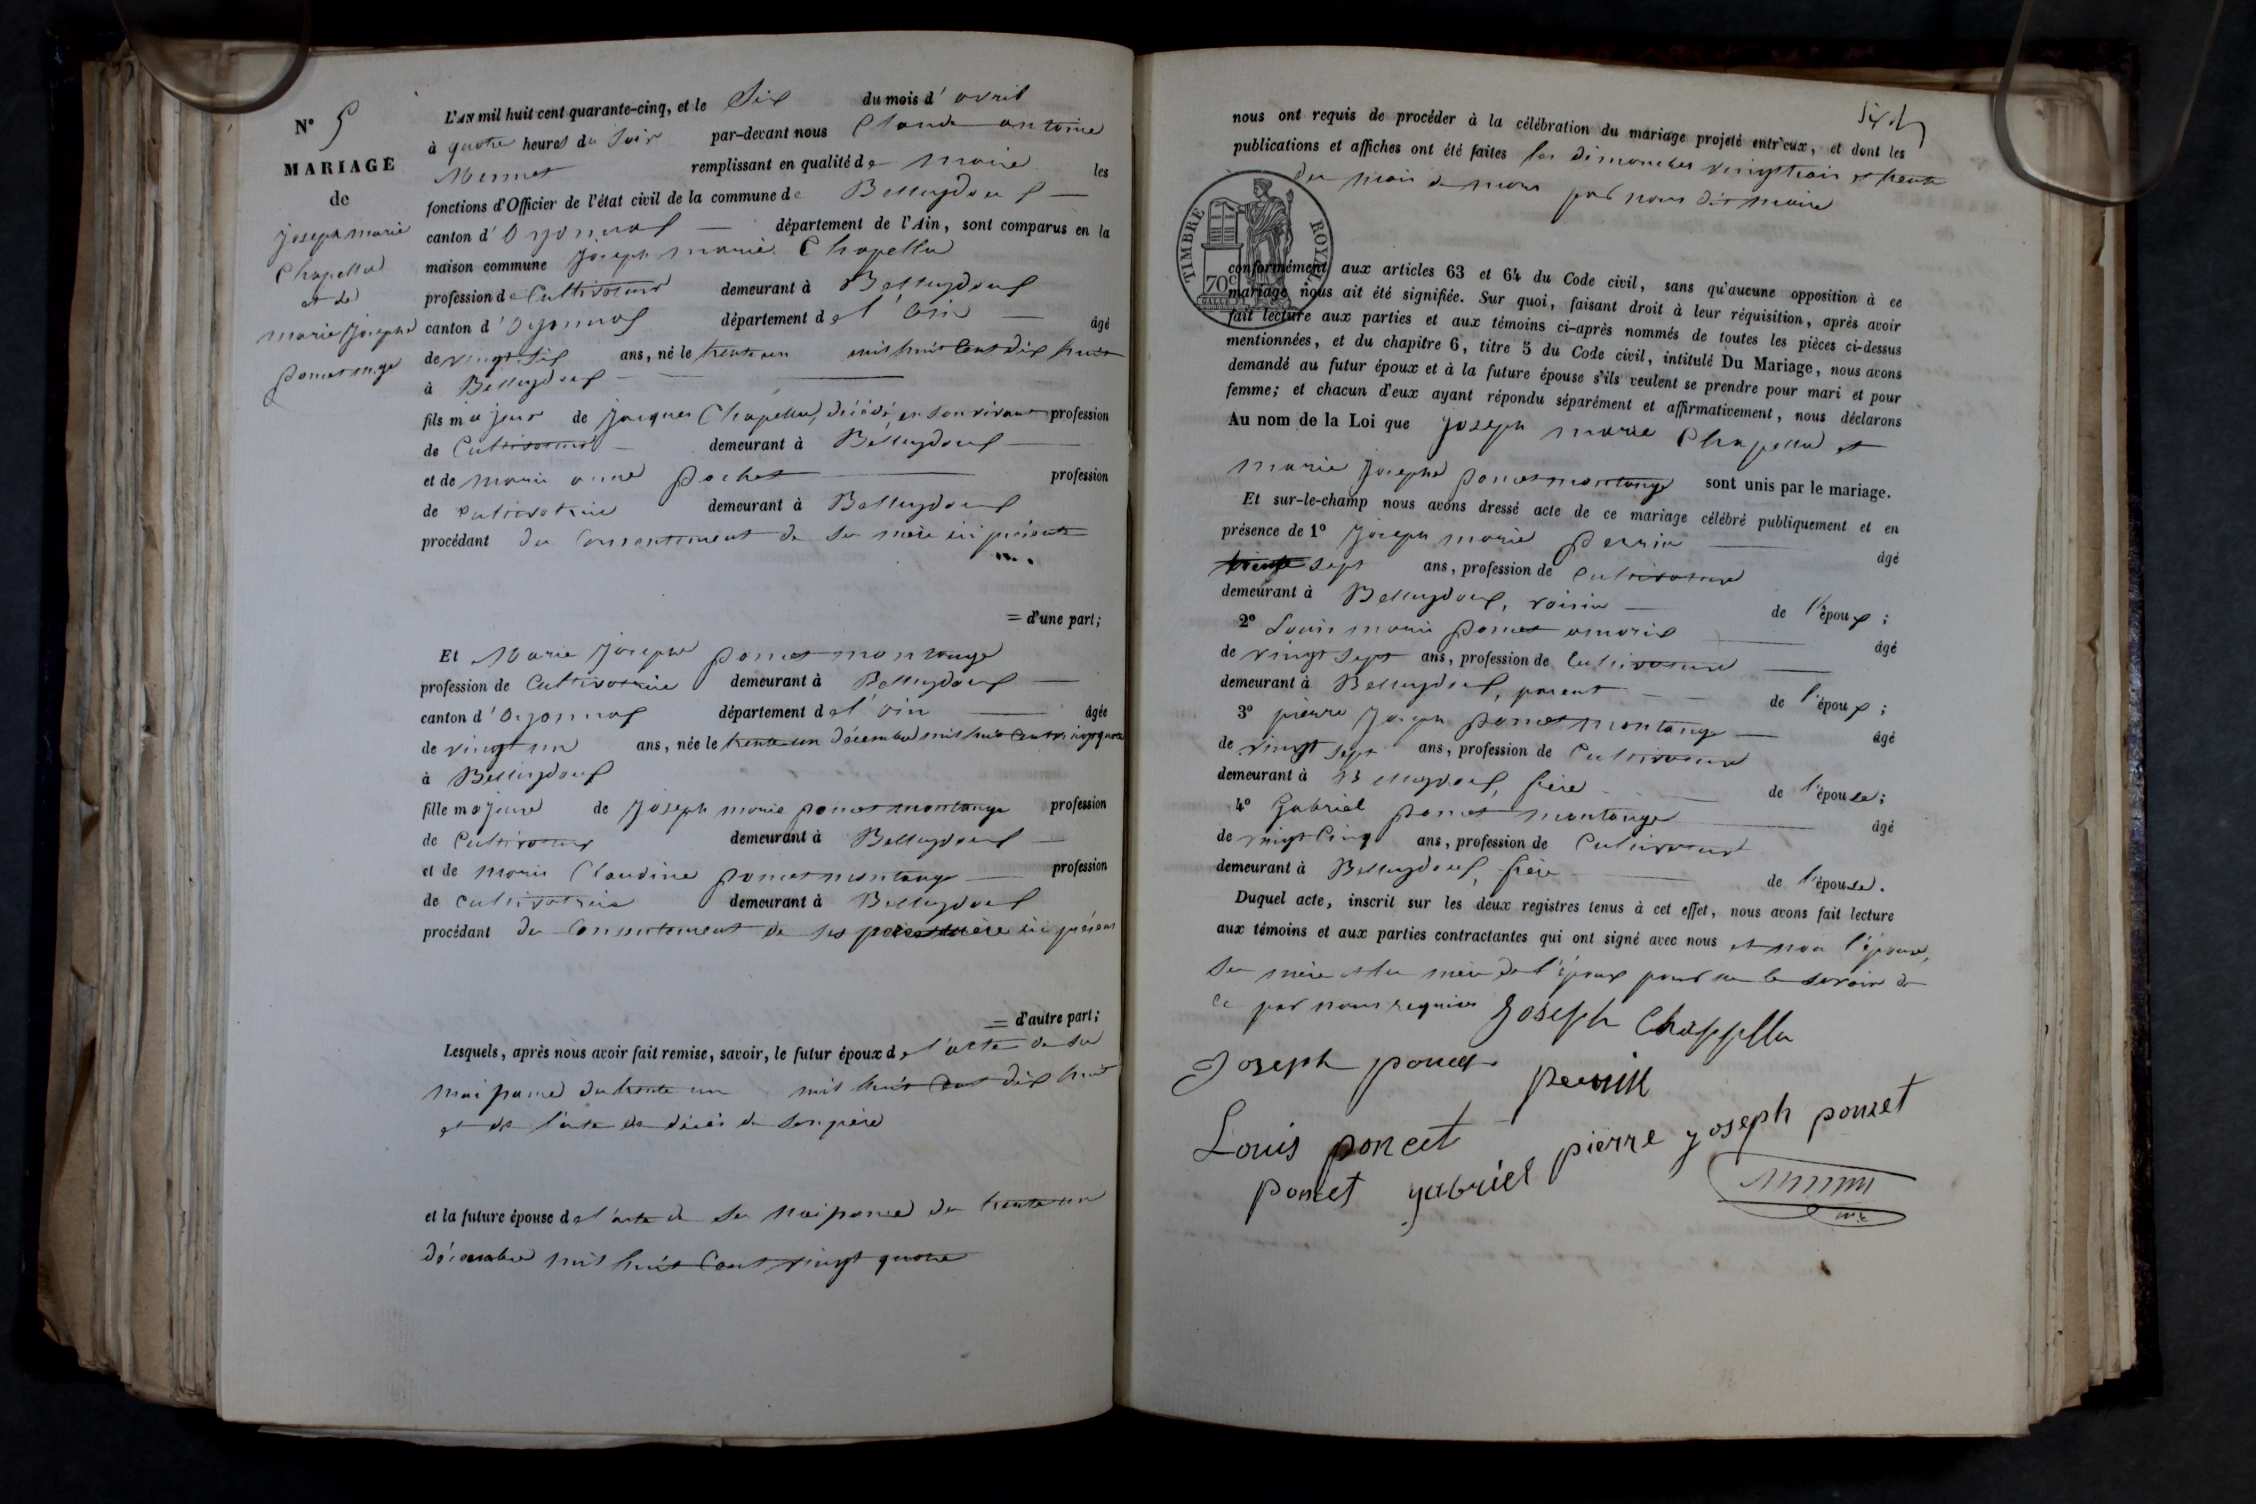 N° 5
MARIAGE
de
joseph marie
Chapellu
et de
marie josephe
poncet m.ge
L'AN mil huit cent quarante-cinq, et le Six du mois d'avril
à quatre heures du Soir par-devant nous Claude antoine
Mermet remplissant en qualité de maire les
fonctions d'Officier de l'état civil de la commune de Belleydoux
canton d'Oyonnax département de l'Ain, sont comparus en la
maison commune joseph marie Chapellu
profession de Cultivateur demeurant à Belleydoux
canton d'Oyonnax département de l'ain âgé
de vingt six ans, né le trente un mil huit Cent dix huit
à Belleydoux
fils majeur de jacques Chapellu, décédé, en son vivant profession
de Cultivateur demeurant à Belleydoux
et de marie anne pochet profession
de cultivatrice demeurant à Belleydoux
procédant du Consentement de sa mère ici présente
= d'une part;
Et Marie josephe poncet montange
profession de Cultivatrice demeurant à Belleydoux
canton d'Oyonnax département de l'ain âgée
de vingt un ans, née le trente un décembre mil huit Cent vingt quatre
à Belleydoux
fille majeure de joseph marie poncet montange profession
de Cultivateur demeurant à Belleydoux
et de marie Claudine poncet montange profession
de cultivatrice demeurant à Belleydoux
procédant du Consentement de ses père et mère ici présens
= d'autre part;
Lesquels, après nous avoir fait remise, savoir, le futur époux de l'acte de sa
naissance du trente un mil huit Cent dix huit
et de l'acte de décès de son père
et la future épouse de l'acte de sa naissance du trente un
décembre mil huit Cent vingt quatre
nous ont requis de procéder à la célébration du mariage projeté entr'eux, et dont les
publications et affiches ont été faites les dimanches vingt trois et trente
du mois de mars par nous dit maire
TIMBRE ROYAL
70c
conformément aux articles 63 et 64 du Code civil, sans qu'aucune opposition à ce
mariage nous ait été signifiée. Sur quoi, faisant droit à leur réquisition, après avoir
fait lecture aux parties et aux témoins ci-après nommés de toutes les pièces ci-dessus
mentionnées, et du chapitre 6, titre 5 du Code civil, intitulé Du Mariage, nous avons
demandé au futur époux et à la future épouse s'ils veulent se prendre pour mari et pour
femme; et chacun d'eux ayant répondu séparément et affirmativement, nous déclarons
Au nom de la Loi que joseph marie Chapellu et
marie josephe poncet montange sont unis par le mariage.
Et sur-le-champ nous avons dressé acte de ce mariage célébré publiquement et en
présence de 1° joseph marie perrin âgé
trente sept ans, profession de Cultivateur
demeurant à Belleydoux, voisin de l'époux;
2° Louis marie poncet amaris âgé
de vingt sept ans, profession de Cultivateur
demeurant à Belleydoux, parent de l'époux;
3° pierre joseph poncet montange âgé
de vingt sept ans, profession de Cultivateur
demeurant à Belleydoux, frère de l'épouse;
4° Gabriel poncet montange âgé
de vingt Cinq ans, profession de Cultivateur
demeurant à Belleydoux, frère de l'épouse.
Duquel acte, inscrit sur les deux registres tenus à cet effet, nous avons fait lecture
aux témoins et aux parties contractantes qui ont signé avec nous et non l'épouse,
sa mère et la mère de l'époux pour ne le savoir de
ce par nous requises
joseph Chappellu
Joseph poncet perrin
Louis poncet pierre joseph poncet
poncet gabriel